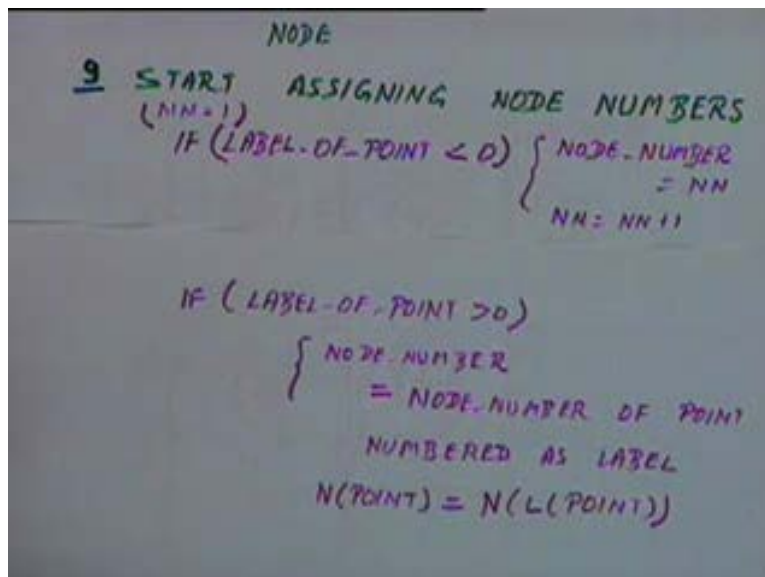 NODE
9 START ASSIGNING NODE NUMBERS
(NN=1)
IF (LABEL-OF-POINT < 0) { NODE-NUMBER
= NN
NN = NN+1
IF (LABEL-OF-POINT >0)
{ NODE-NUMBER
= NODE-NUMBER OF POINT
NUMBERED AS LABEL
N(POINT) = N(L(POINT))